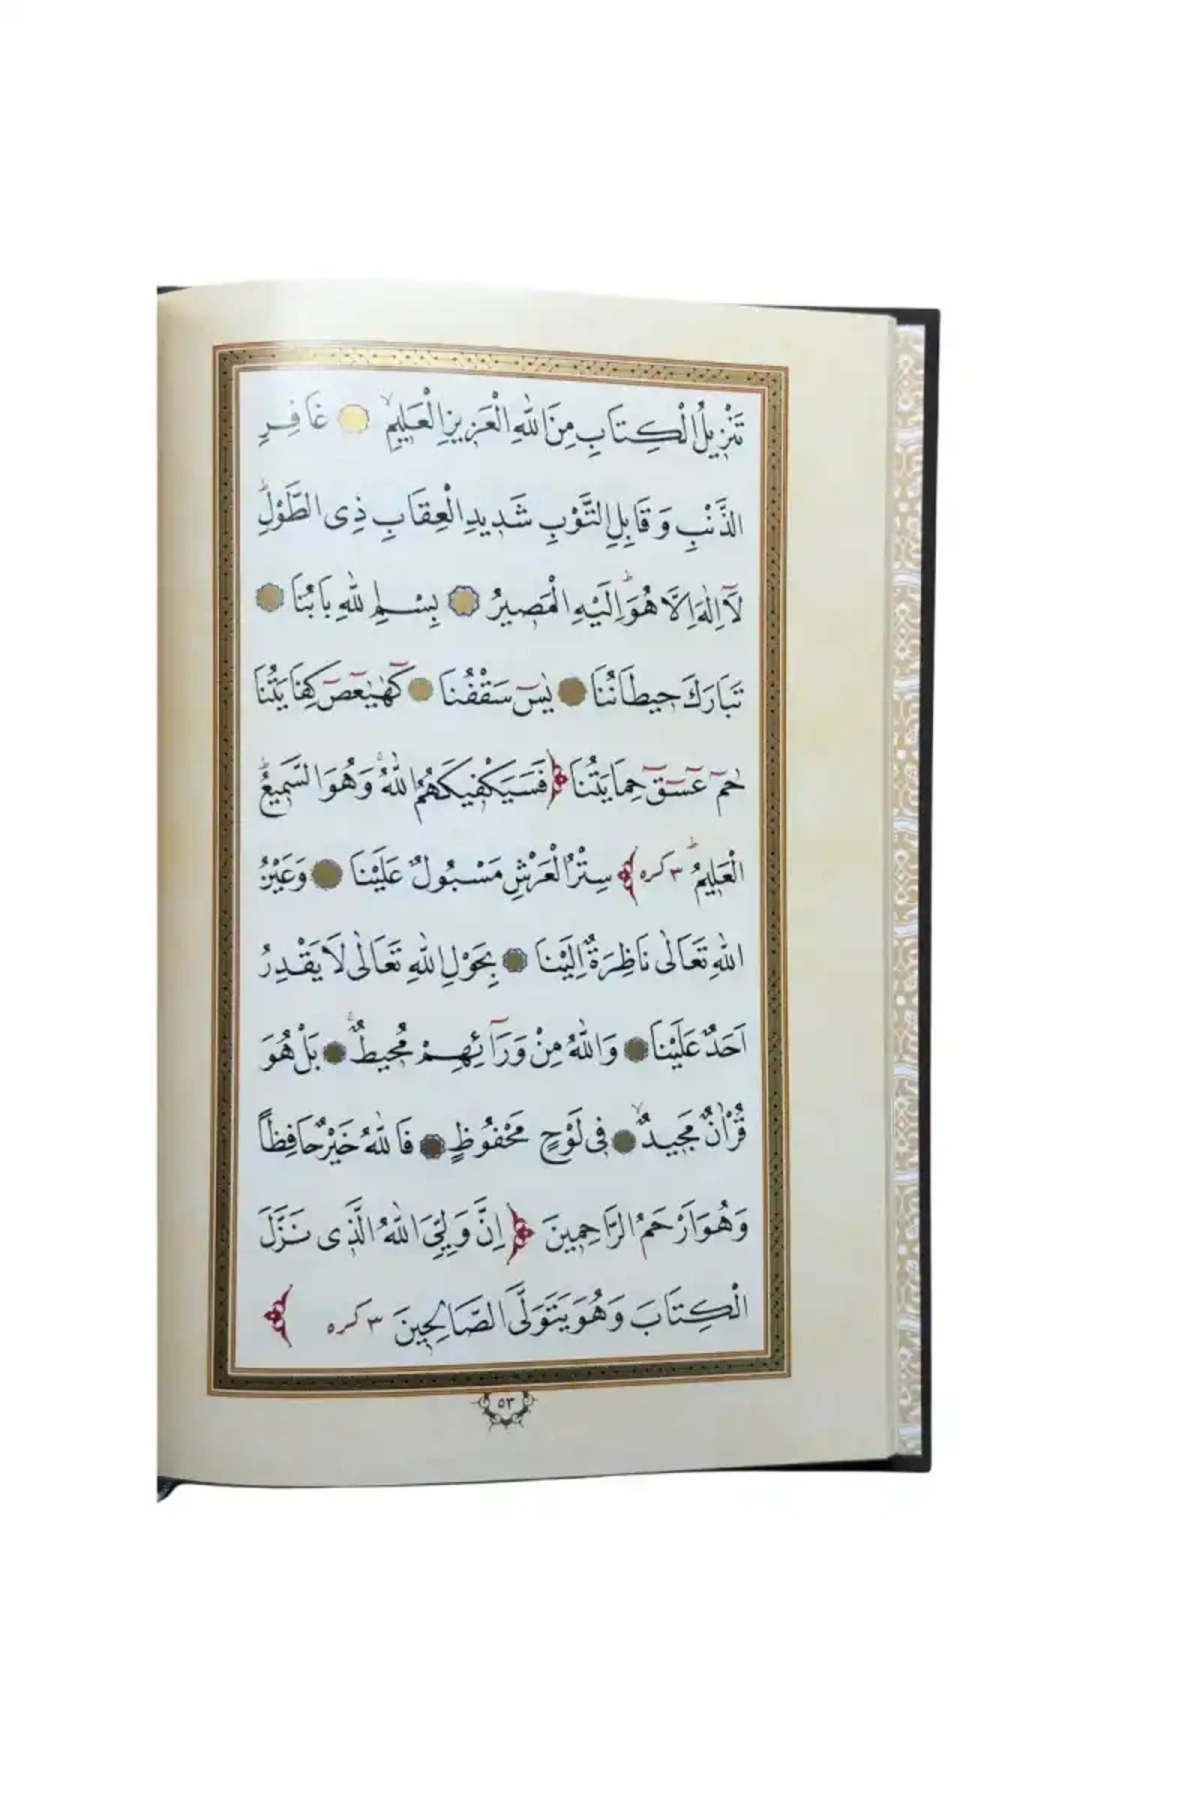 تَنْزِيلُ الْكِتَابِ مِنَ اللّٰهِ الْعَزِيزِ الْعَلِيمِ ۙ غَافِرِ
الذَّنْبِ وَقَابِلِ التَّوْبِ شَدِيدِ الْعِقَابِ ذِى الطَّوْلِ ۜ
لَآ اِلٰهَ اِلَّا هُوَ ۜ اِلَيْهِ الْمَصِيرُ بِسْمِ اللّٰهِ بَابُنَا
تَبَارَكَ حِيطَانُنَا يٰسٓ سَقْفُنَا كٓهٰيٰعٓصٓ كِفَايَتُنَا
حٰمٓ عٓسٓقٓ حِمَايَتُنَا فَسَيَكْفِيكَهُمُ اللّٰهُ ۚ وَهُوَ السَّمِيعُ
الْعَلِيمُ ۜ ٣ كره سِتْرُ الْعَرْشِ مَسْبُولٌ عَلَيْنَا وَعَيْنُ
اللّٰهِ تَعَالٰى نَاظِرَةٌ اِلَيْنَا بِحَوْلِ اللّٰهِ تَعَالٰى لَا يَقْدِرُ
اَحَدٌ عَلَيْنَا وَاللّٰهُ مِنْ وَرَآئِهِمْ مُحِيطٌ ۚ بَلْ هُوَ
قُرْاٰنٌ مَجِيدٌ ۙ فِى لَوْحٍ مَحْفُوظٍ فَاللّٰهُ خَيْرٌ حَافِظاً
وَهُوَ اَرْحَمُ الرَّاحِمِينَ اِنَّ وَلِيِّىَ اللّٰهُ الَّذِى نَزَّلَ
الْكِتَابَ وَهُوَ يَتَوَلَّى الصَّالِحِينَ ٣ كره
٥٣